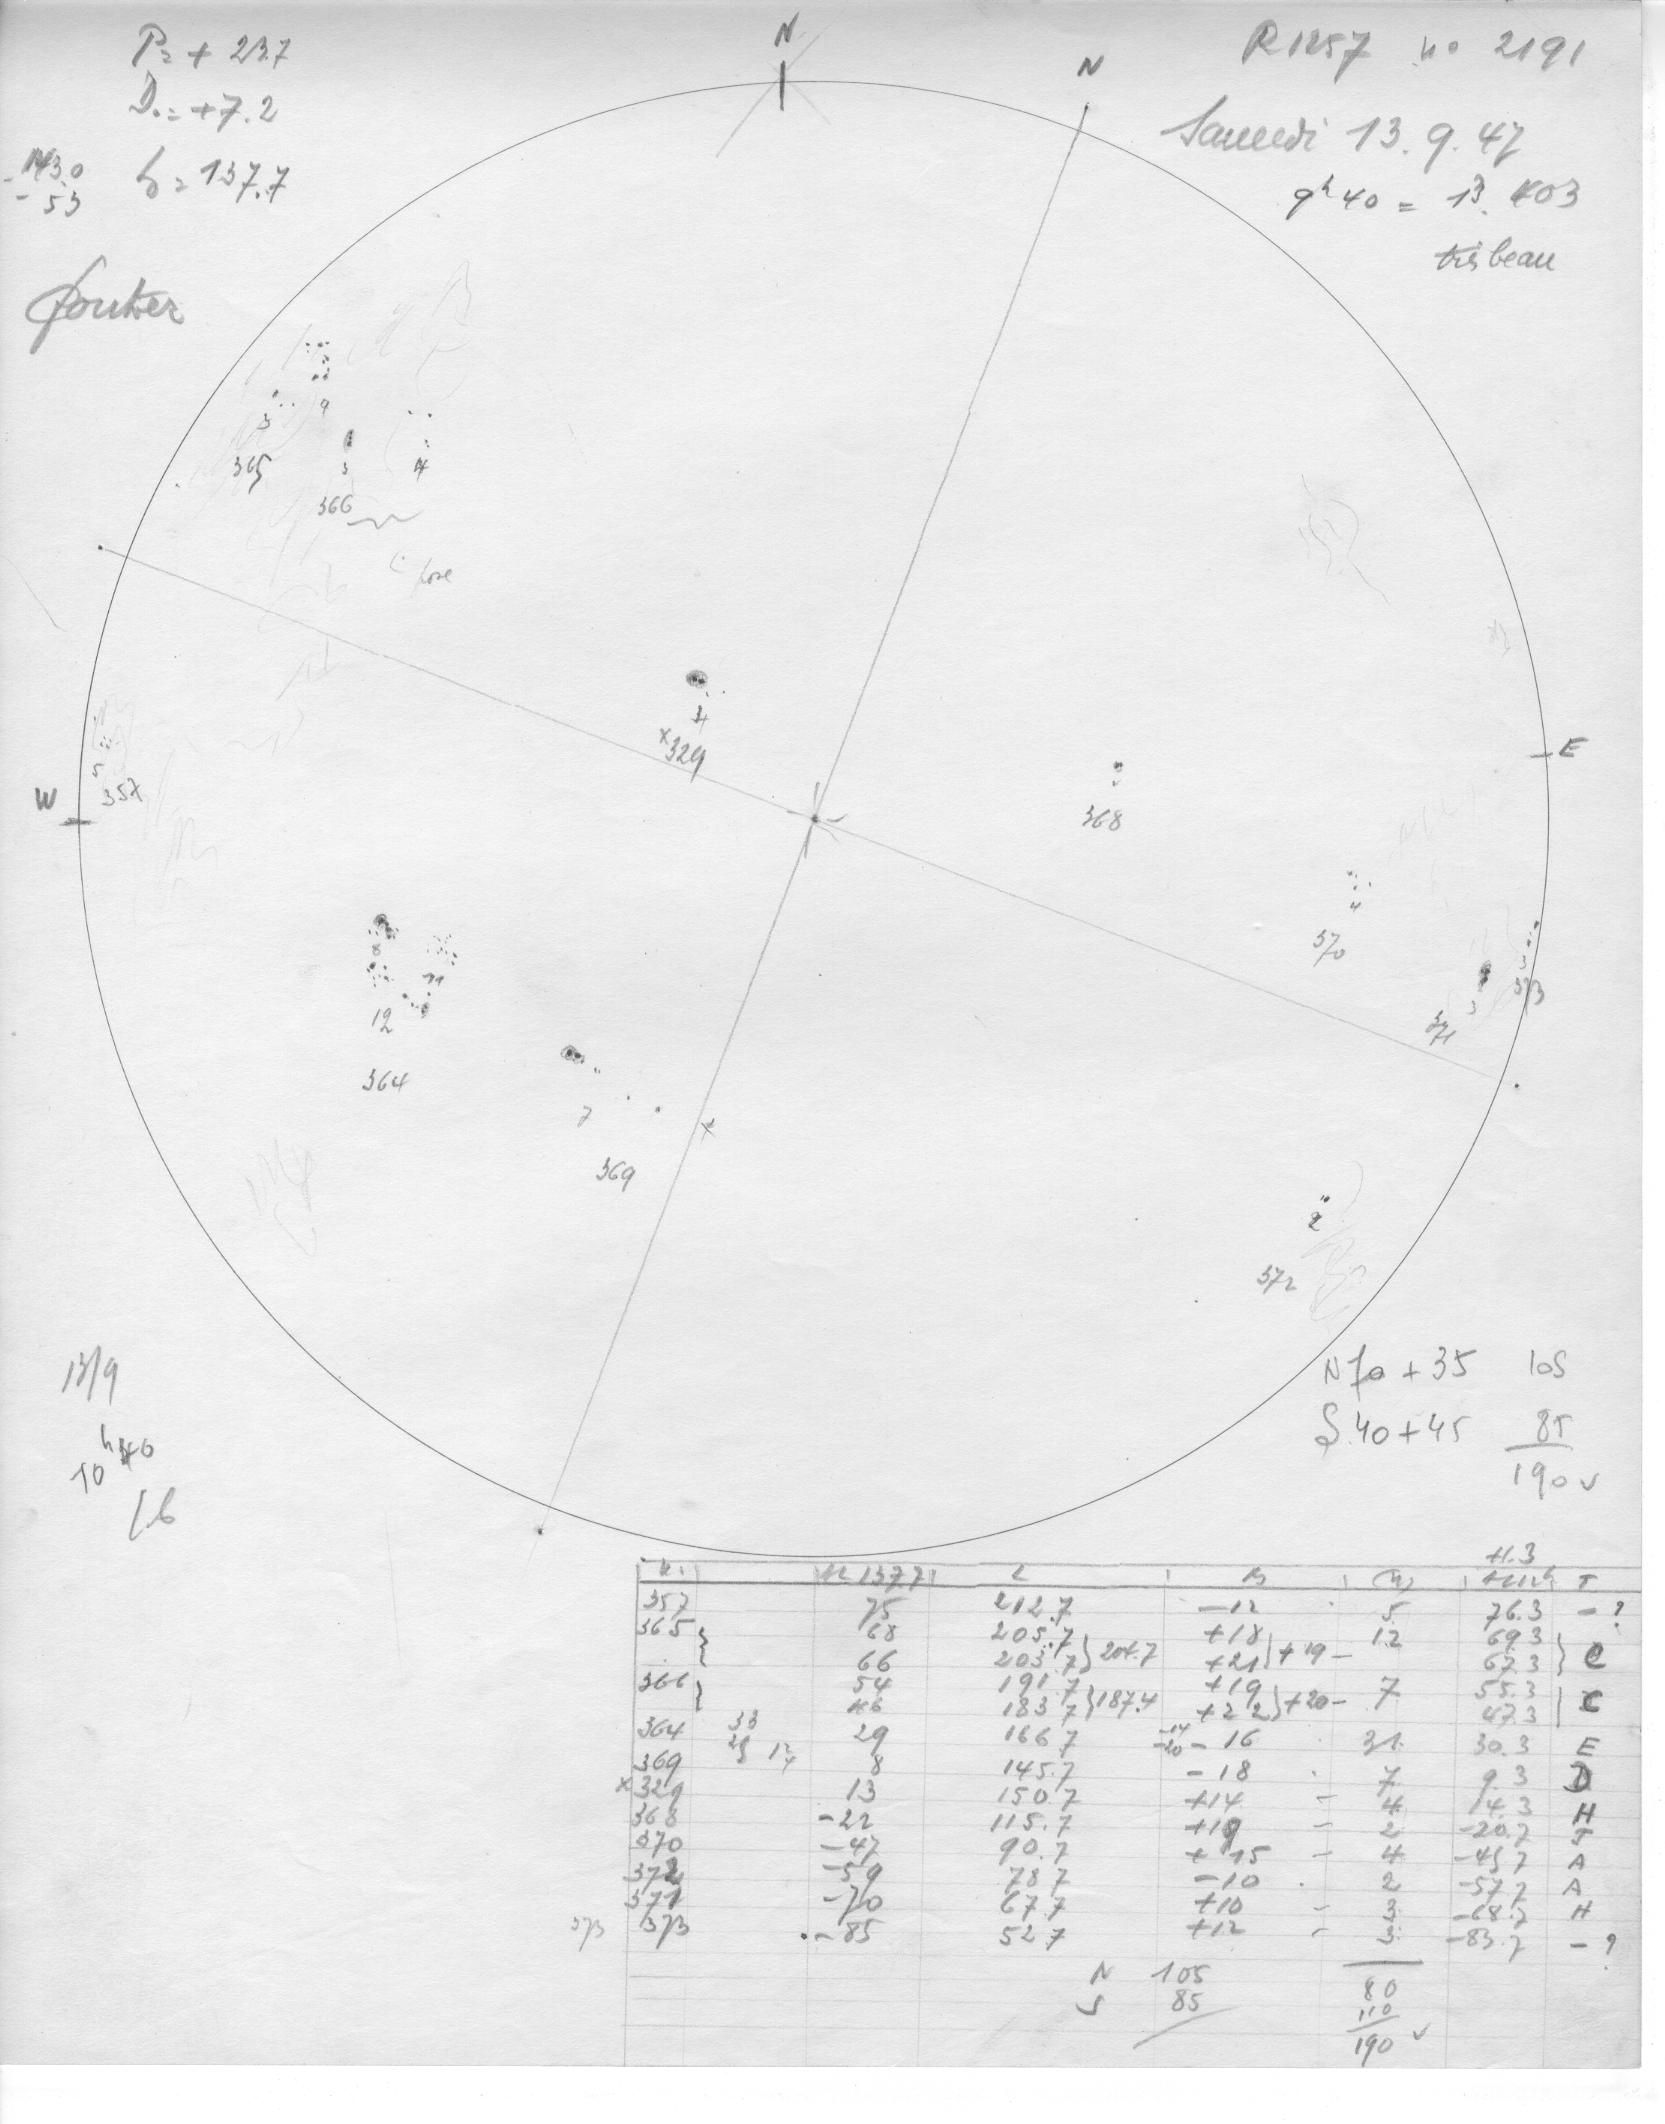 P= + 23.7
D.= +7.2
L= 137.7
- 53
N
N
R1257 no 2191
Samedi 13.9.47
9h 40 = 13.403
très beau
3
9
365
3
366
4
fore
4
x329
368
E
W
5
357
4
370
3
373
3
371
8
11
12
364
7
369
2
372
13/9
10h 40
N 70 + 35 105
S 40 + 45 85
190 v
+1.3
L
B
T
357 75 212.7 -12 5 76.3 - ?
365 68 205.7 +18 12 69.3
66 203.7 204.7 +21 +19 - 67.3 C
366 54 191.7 +19 7 55.3
46 183.7 187.4 +22 +20 - 47.3 C
364 29 166.7 -14 -20 - 16 31 30.3 E
369 8 145.7 -18 7 9.3 D
x329 13 150.7 +14 - 4 14.3 H
368 -22 115.7 +19 - 2 -20.7 J
370 -47 90.7 +15 - 4 -45.7 A
372 -59 78.7 -10 2 -57.7 A
371 -70 67.7 +10 - 3 -68.7 H
373 373 -85 52.7 +12 - 3 -83.7 - ?
N 105 80
S 85 110
190 v